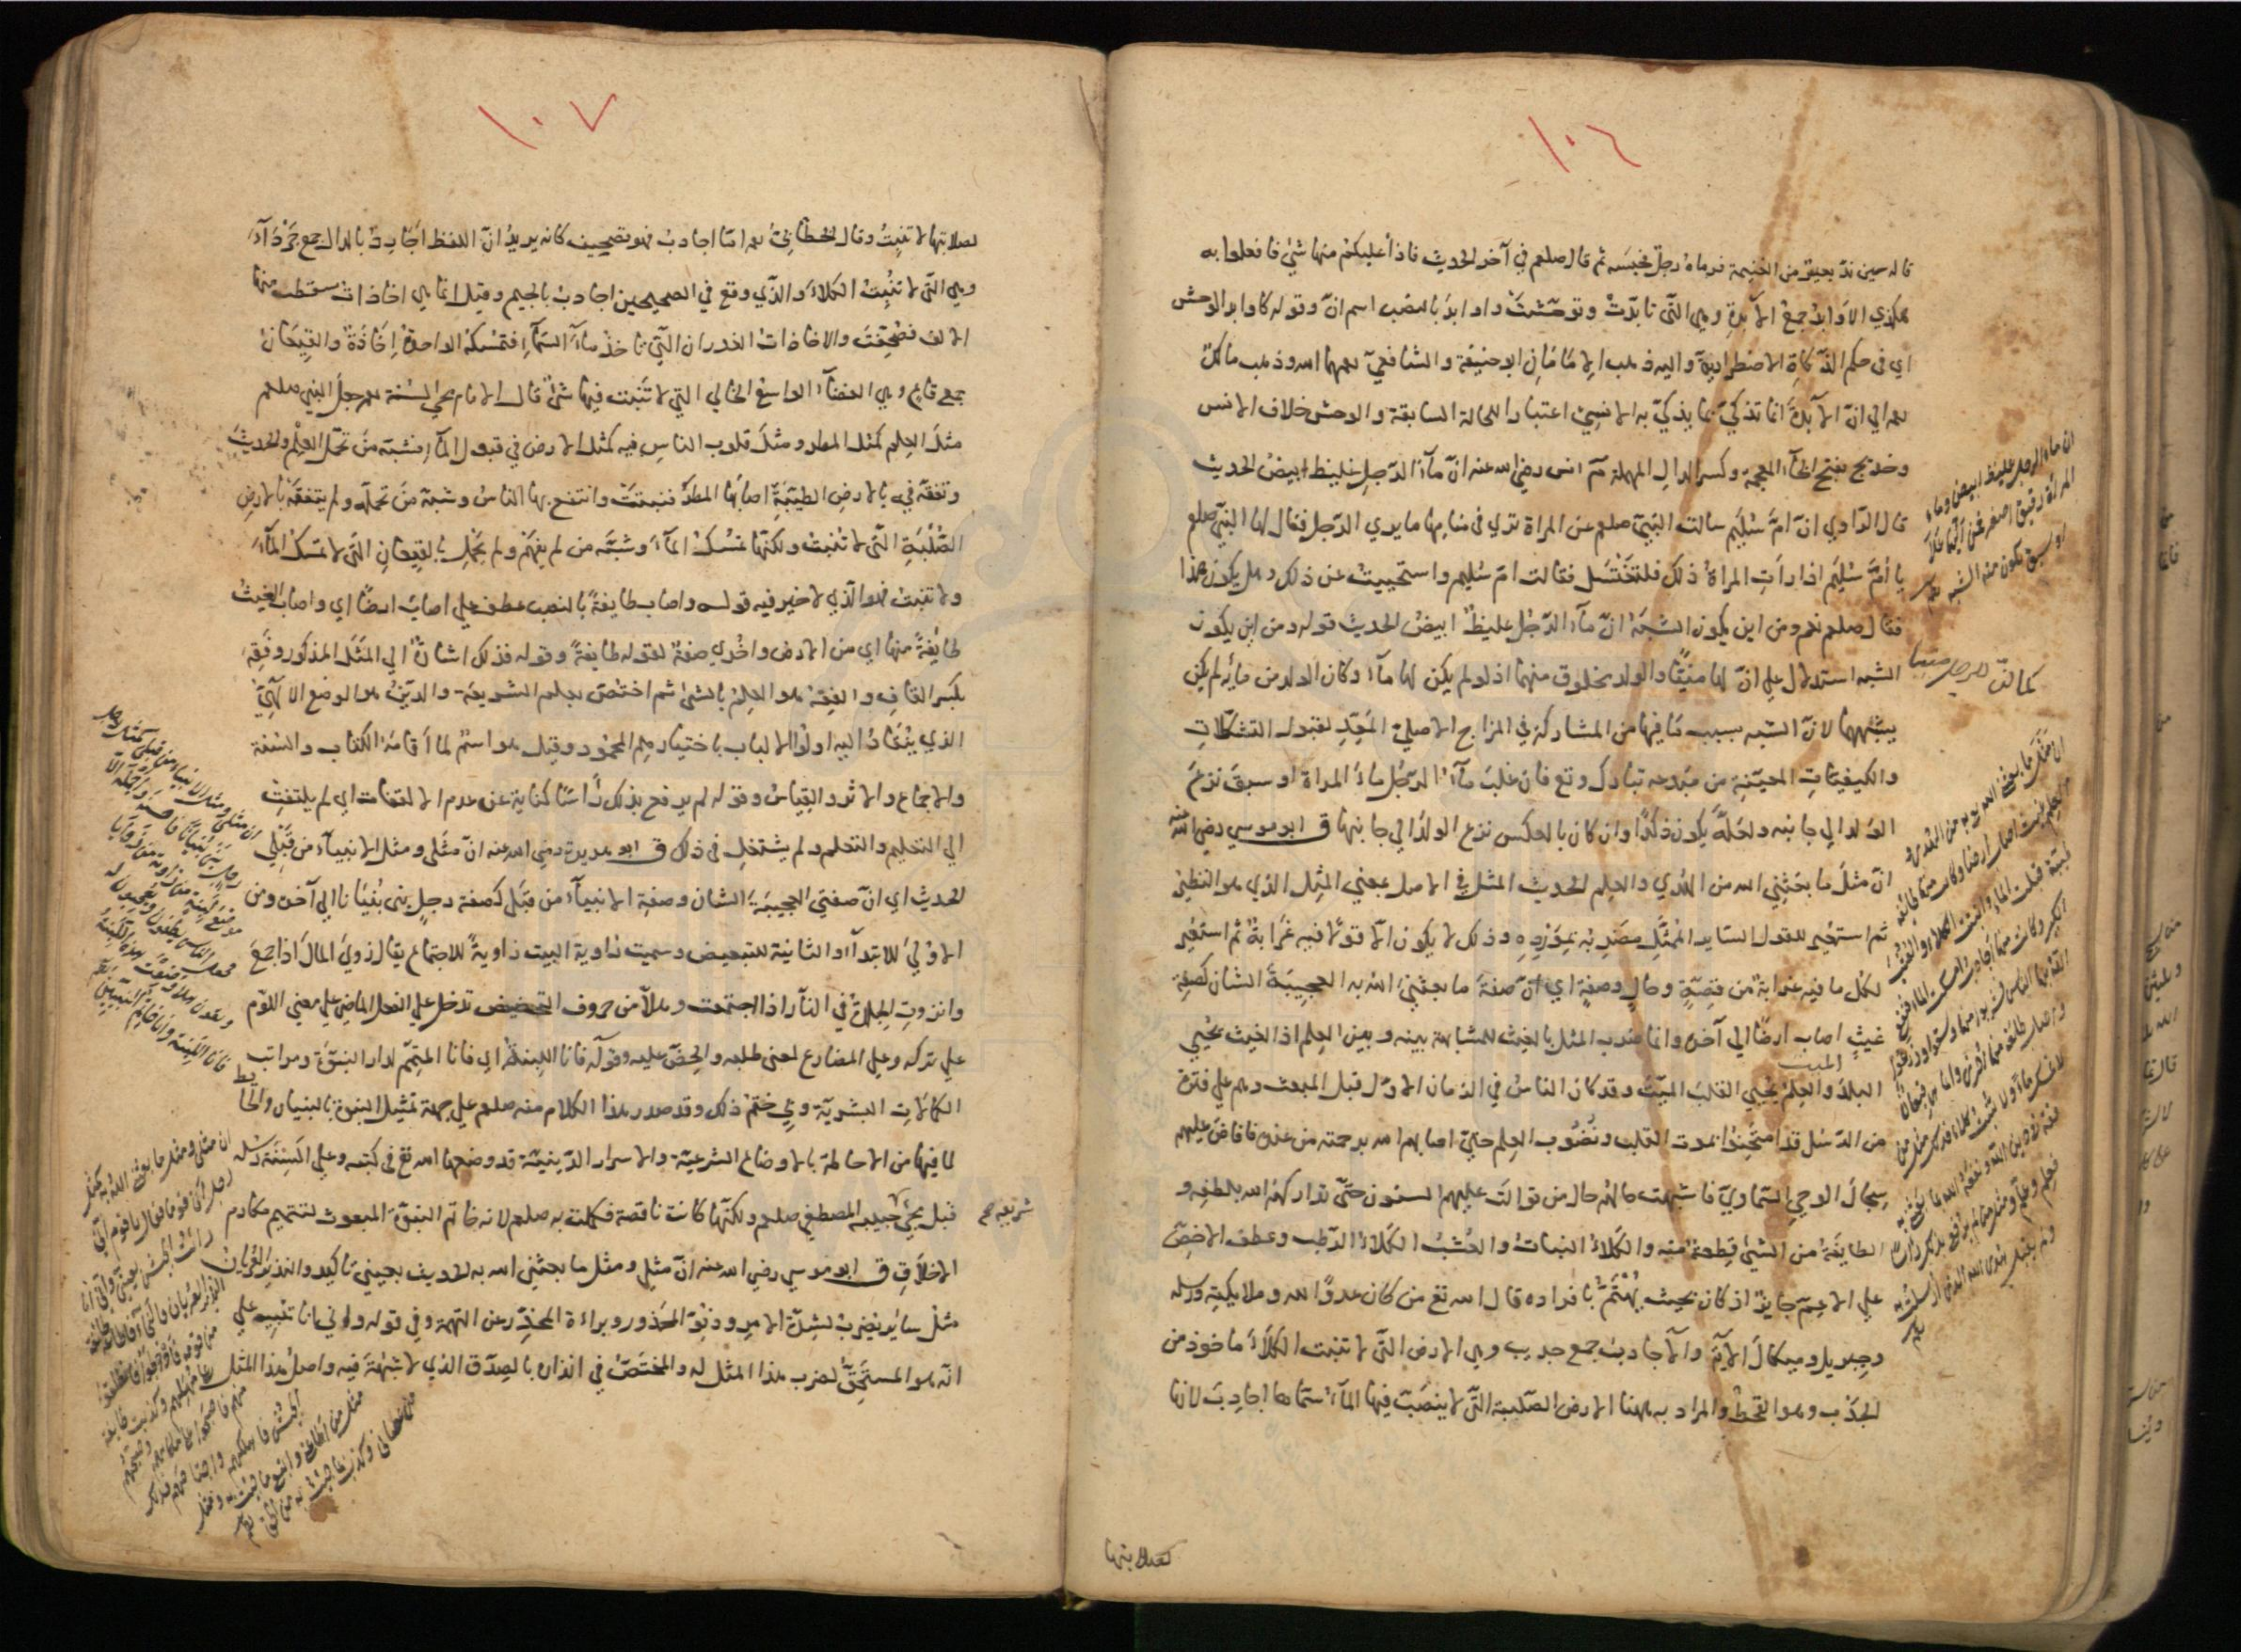 ١٠٦
قاله حين ندّ بعير من الغنيمة فرماه رجل فحبسه ثم قال صلعم في آخر الحديث فاذا غلبكم منها شئ فافعلوا به
هكذي الاوابد جمع الآبدة وهي التي تابدت وتوحشت واوابد بالنصب اسم انّ وقوله كاوابد الوحش
اي في حكم الذكاة الاضطرارية واليه ذهب الامامان ابو حنيفة والشافعي رحمهما الله وذهب مالك
رحمه الي انّ الآبدة انما تذكي بما يذكي به الانسي اعتبارا للحالة السابقة والوحش خلاف الانس
وخديج بفتح الخاء المعجمة وكسر الدال المهملة م انس رضي الله عنه انّ ماء الرجل غليظ ابيض الحديث
قال الراوي انّ امّ سليم سالت النبي صلعم عن المراة تري في منامها ما يري الرجل فقال لها النبي صلعم
يا امّ سليم اذا رأت المراة ذلك فلتغتسل فقالت امّ سليم واستحييت عن ذلك وهل يكون هذا
فقال صلعم نعم ومن اين يكون الشبه انّ ماء الرجل غليظ ابيض الحديث قوله ومن اين يكون
الشبه استدلال علي انّ لها منيّا والولد مخلوق منهما اذ لو لم يكن لها ماء وكان الولد من مائه لم يكن
يشبهها لانّ الشبه بسبب ما فيها من المشاركة في المزاج الاصلي المعدّ لقبول التشكلات
والكيفيات المعينة من مبدعه تبارك وتع فان غلب ماء الرجل ماء المراة او سبق نزع
الولد الي جانبه ولعله يكون ذكرا وان كان بالعكس نزع الولد الي جانبها ق ابو موسي رضي الله عنه
انّ مثل ما بعثني الله من الهدي والعلم الحديث المثل في الاصل بمعني المثل الذي هو النظير
ثم استعير للقول الساير الممثل مضربه بمورده وذلك لا يكون الا قولا فيه غرابة ثم استعير
لكل ما فيه غرابة من قصة وحال وصفة اي انّ صفة ما بعثني الله به العجيبة الشان كصفة
غيث اصاب ارضا الي آخره وانما ضرب المثل بالغيث للمشابهة بينه وبين العلم اذ الغيث يحيي
البلد الميت والعلم يحيي القلب الميت وقد كان الناس في الزمان الاول قبل المبعث وهم علي فترة
من الرسل قد امتحنوا بموت القلب ونضوب العلم حتي اصابهم الله برحمته من عنده فافاض عليهم
سجال الوحي السماوي فاشبهت حالهم حال من توالت عليهم السنون حتي تداركهم الله بلطفه و
الطايفة من الشئ قطعة منه والكلاء النبات والعشب الكلاء الرطب وعطف الاخص
علي الاعم جايز اذ كان بحيث يهتم بافراده قال الله تع من كان عدوّا لله وملايكته ورسله
وجبريل وميكال الآية والاجادب جمع جديب وهي الارض التي لا تنبت الكلاء ماخوذ من
الجدب وهو القحط والمراد به ههنا الارض الصلبة التي لا ينضب فيها الماء سماها اجادب لانها
لصلابتها
ان ماء الرجل غليظ ابيض وماء
المرأة رقيق اصفر فمن ايّهما علا
او سبق يكون منه الشبه
ان مثل ما بعثني الله به من الهدي و
العلم كمثل غيث اصاب ارضا وكانت منها طائفة
طيبة قبلت الماء وانبتت الكلاء والعشب
الكثير وكانت منها اجادب امسكت الماء فنفع
الله بها الناس فشربوا منها وسقوا وزرعوا
واصاب طائفة منها اخري وانما هي قيعان
لا تمسك ماء ولا تنبت كلاء فذلك مثل من
فقه في دين الله ونفعه الله بما بعثني به
فعلم وعلّم ومثل من لم يرفع بذلك رأسا
ولم يقبل هدي الله الذي ارسلت به
١٠٧
لصلابتها لا تنبت وقال الخطابي رحمه امّا اجادب فهو تصحيف كانه يريد انّ اللفظ اجارد بالدال جمع جرداء
وهي التي لا تنبت الكلاء والذي وقع في الصحيحين اجادب بالجيم وقيل انما هي اخاذات سقطت منها
الالف فصحفت والاخاذات الغدران التي تاخذ ماء السماء فتمسكه الواحدة اخاذة والقيعان
جمع قاع وهي الفضاء الواسع الخالي التي لا تنبت فيها شئ قال الامام محي السنة رحمه جعل النبي صلعم
مثل العلم كمثل المطر ومثل قلوب الناس فيه كمثل الارض في قبول الماء فشبه من تحمل العلم والحديث
وتفقه فيه بالارض الطيبة اصابها المطر فنبتت وانتفع بها الناس وشبه من تحمله ولم يتفقه بالارض
الصلبة التي لا تنبت ولكنها تمسك الماء وشبه من لم يفهم ولم يحمل بالقيعان التي لا تمسك الماء
ولا تنبت فهو الذي لا خير فيه قوله واصاب طايفة بالنصب عطف علي اصاب ارضا اي واصاب الغيث
طايفة منها اي من الارض واخري صفة لقوله طايفة وقوله فذلك اشارة الي المثل المذكور وفقه
بكسر القاف والفقه هو العلم بالشئ ثم اختص بعلم الشريعة والدين هو الوضع الالهي
الذي ينقاد اليه اولوا الالباب باختيارهم المحمود وقيل هو اسم لما اقامه الكتاب والسنة
والاجماع والاثر والقياس وقوله لم يرفع بذلك رأسا كناية عن عدم الالتفات اي لم يلتفت
الي التعليم والتعلم ولم يشتغل في ذلك ق ابو هريرة رضي الله عنه انّ مثلي ومثل الانبياء من قبلي
الحديث اي انّ صفتي العجيبة الشان وصفة الانبياء من قبلي كصفة رجل بني بنيانا الي آخره ومن
الاولي للابتداء والثانية للتبعيض وسميت زاوية البيت زاوية للاجتماع يقال زوي المال اذا جمع
وانزوت الجلدة في النار اذا اجتمعت وهلا من حروف التحضيض تدخل علي الفعل الماضي علي معني اللوم
علي تركه وعلي المضارع لمعني طلبه والحض عليه وقوله فانا اللبنة اي فانا المتمم لدار النبوة ومراتب
الكمالات البشرية وبي ختم ذلك وقد صدر هذا الكلام منه صلعم علي جهة تمثيل النبوة بالبنيان والحايط
لما فيها من الاحاطة بالاوضاع الشرعية والاسرار الدينية قد وضعها الله تع في كتبه وعلي السنة رسله
قبل مجئ حبيبه المصطفي صلعم ولكنها كانت ناقصة فكملت به صلعم لانه خاتم النبوة المبعوث لتتميم مكارم
الاخلاق ق ابو موسي رضي الله عنه انّ مثلي ومثل ما بعثني الله به الحديث بعيني تاكيد والنذير العريان
مثل ساير يضرب لشدة الامر ودنو المحذور وبراءة المحذر عن التهمة وفي قوله واني انا تنبيه علي
انه هو المستحق لضرب هذا المثل له والمختص في انذاره بالصدق الذي لا شبهة فيه واصل هذا المثل
ان مثلي ومثل الانبياء من قبلي كمثل رجل
ان مثلي ومثل ما بعثني الله به كمثل
رجل اتي قوما فقال يا قوم اني
رأيت الجيش بعيني واني انا
النذير العريان